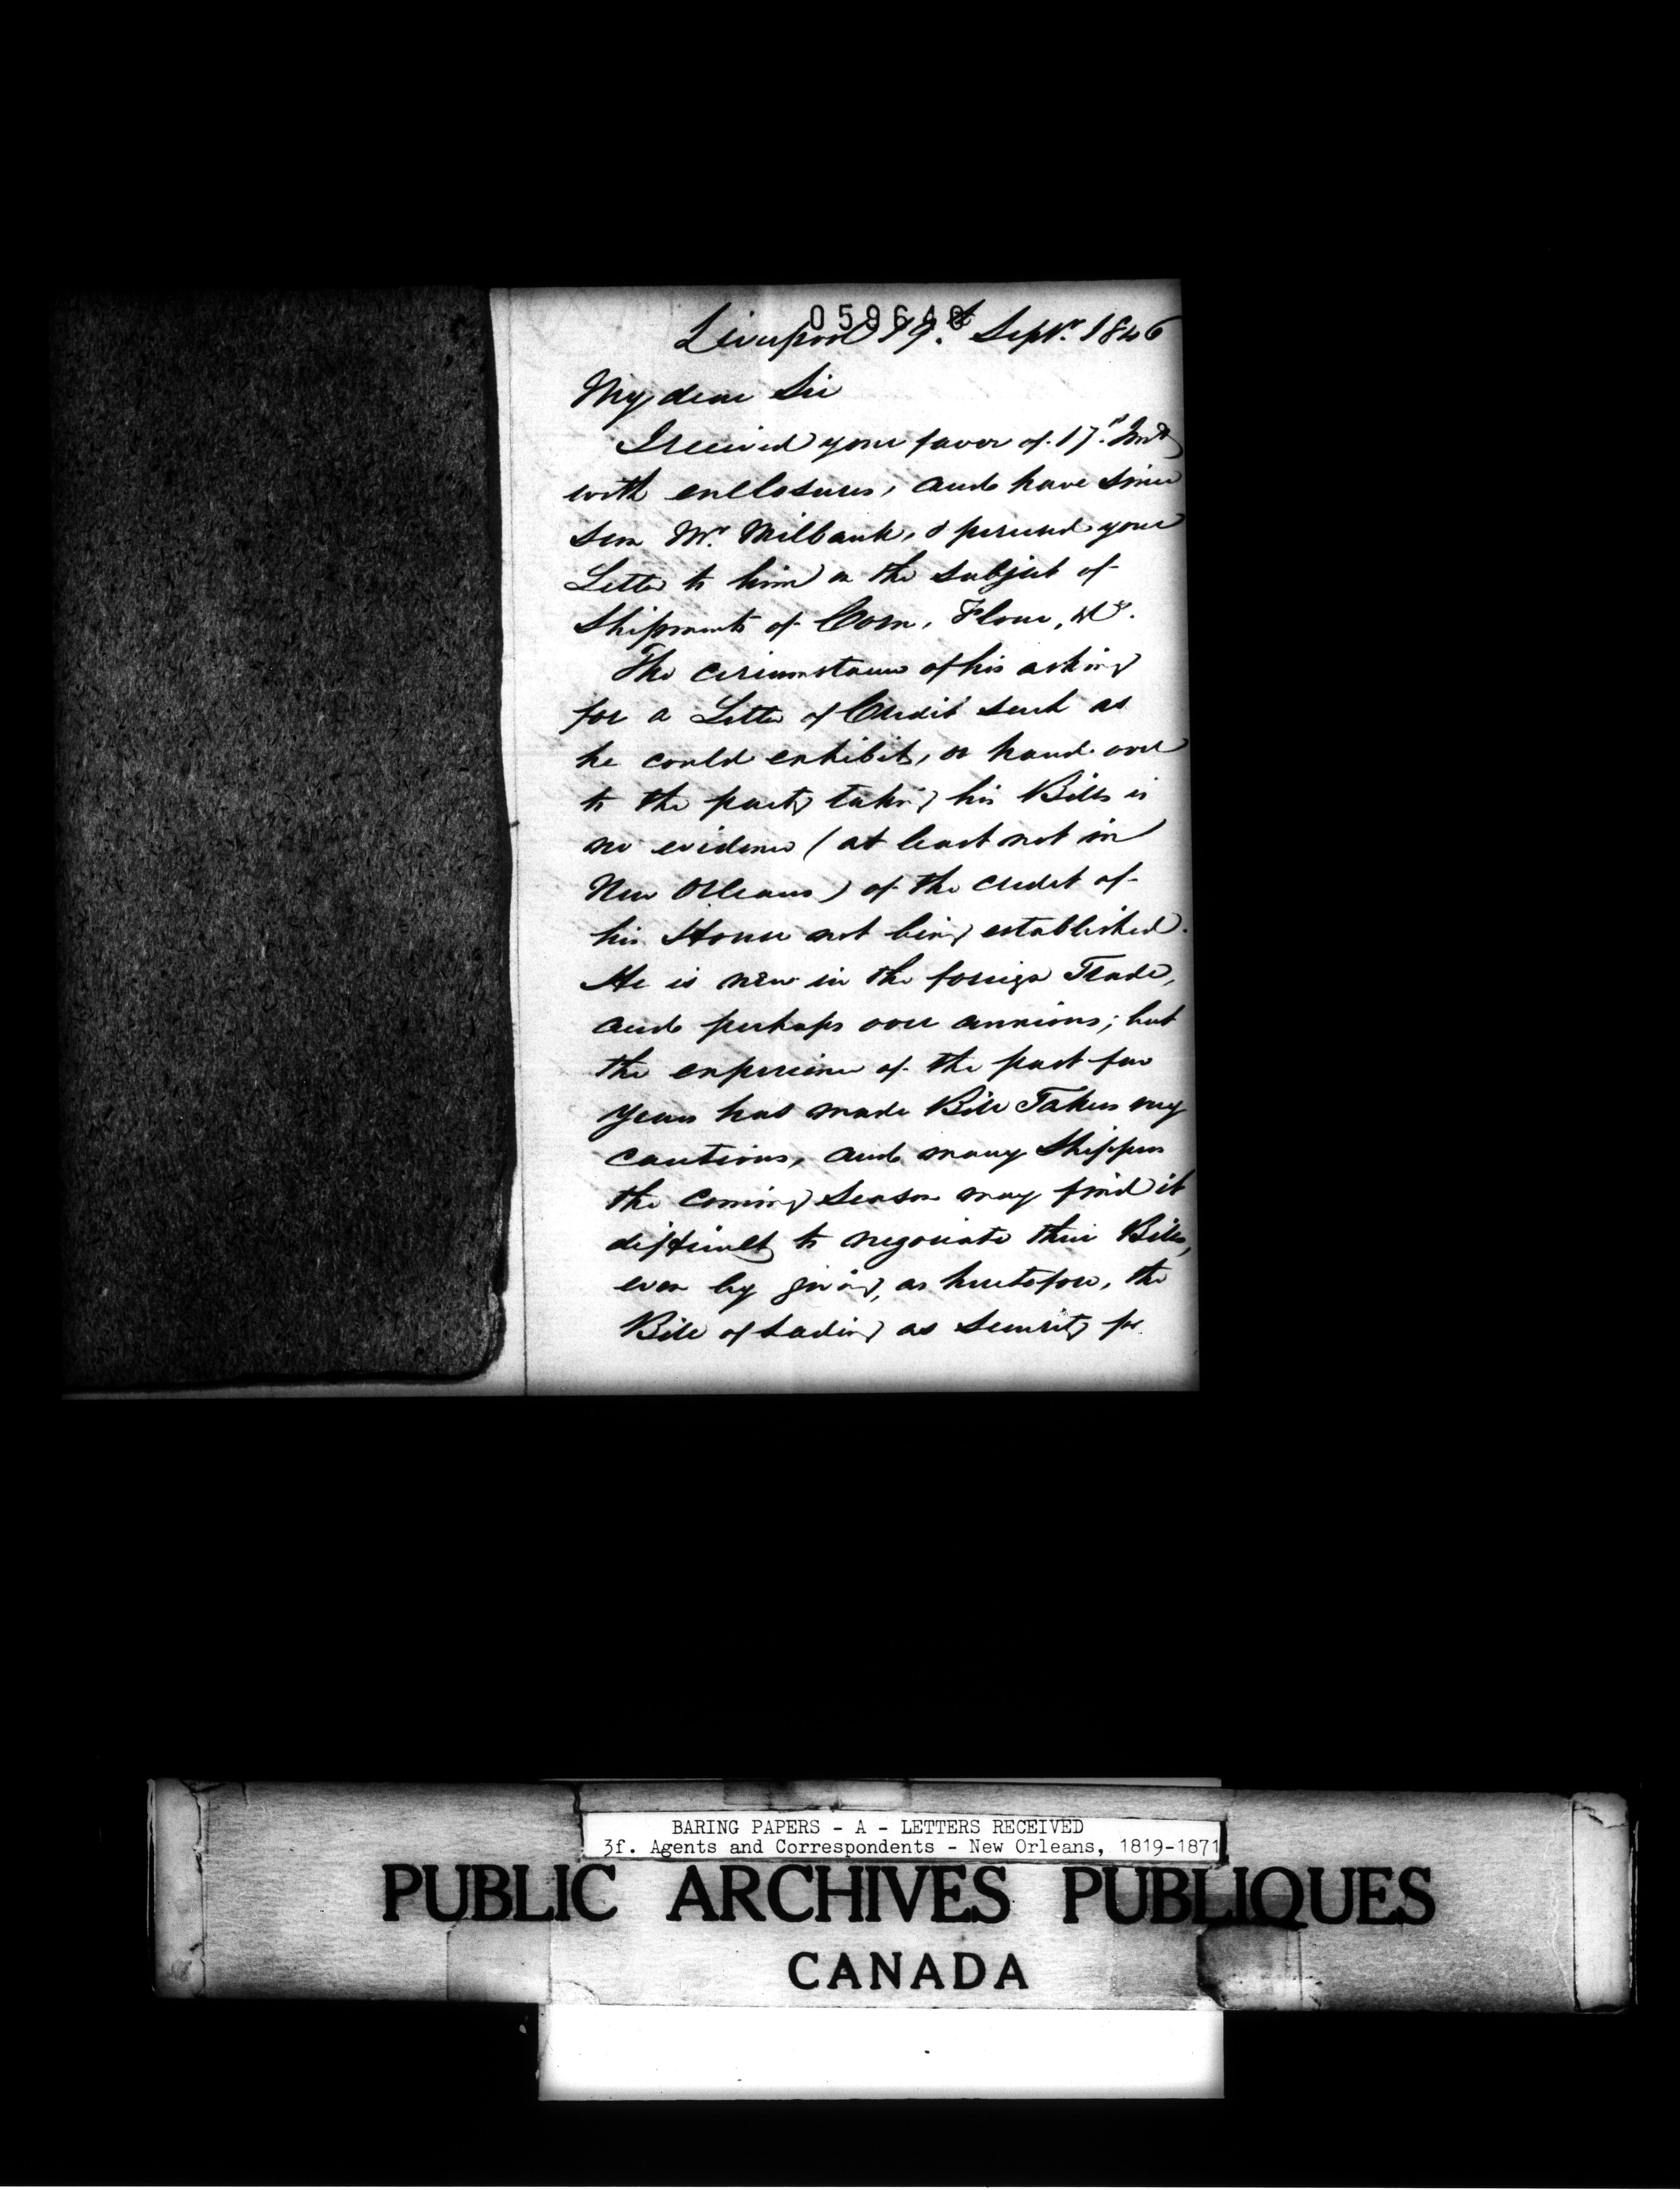 05964
Liverpool 19. Septr. 1846
My dear Sir
I received your favor of 17. Inst
with enclosures, and have since
seen Mr. Milbank, & perused your
Letter to him on the subject of
Shipments of Corn, Flour, &c.
The circumstance of his asking
for a Letter of Credit such as
he could exhibit, or hand over
to the party taking his Bills is
no evidence (at least not in
New Orleans) of the credit of
his House not being established.
He is new in the foreign Trade,
and perhaps over anxious; but
the experience of the past few
years has made Bill Takers very
cautious, and many Shippers
the coming season may find it
difficult to negociate their Bills,
even by giving, as heretofore, the
Bill of Lading as security for
BARING PAPERS - A - LETTERS RECEIVED
3f. Agents and Correspondents - New Orleans, 1819-1871
PUBLIC ARCHIVES PUBLIQUES
CANADA